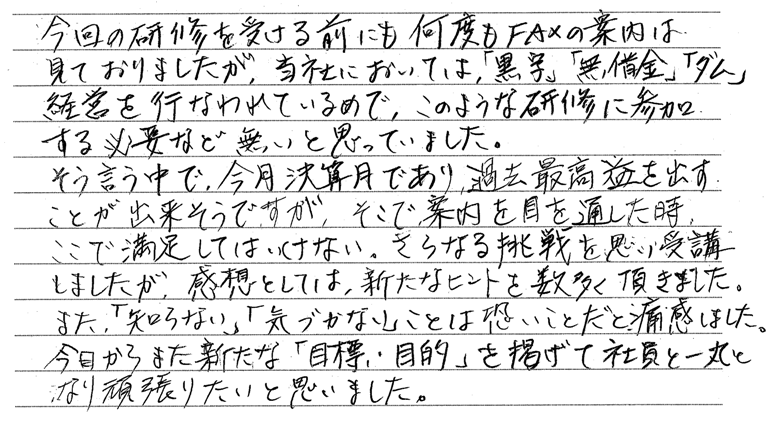 今回の研修を受ける前にも何度もFAXの案内は
見ておりましたが、当社においては、「黒字」「無借金」「ダム」
経営を行なわれているので、このような研修に参加
する必要など無いと思っていました。
そう言う中で、今月決算月であり、過去最高益を出す
ことが出来そうですが、そこで案内を目を通した時、
ここで満足してはいけない。さらなる挑戦を思い受講
しましたが、感想としては、新たなヒントを数多く頂きました。
また、「知らない」「気づかない」ことは恐いことだと痛感しました。
今日からまた新たな「目標・目的」を掲げて社員と一丸と
なり頑張りたいと思いました。